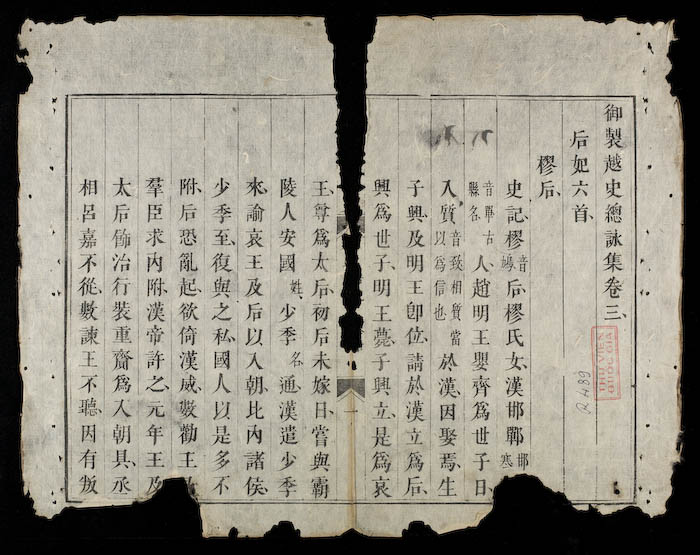 御製越史總詠集卷三、
后妃六首、
樛后、
史記、樛音鳩后、樛氏女、漢邯鄲邯寒
音單古縣名人、趙明王嬰齊爲世子日、
入質音致相質當以為信也於漢、因娶焉、生
子興、及明王卽位、請於漢立爲后、
興爲世子、明王薨、子興立、是爲哀
王、尊爲太后、初后未嫁日、嘗與霸
陵人安國姓少季名通、漢遣少季
來、諭哀王及后以入朝、比內諸侯、
少季至、復與之私、國人以是多不
附、后恐亂起、欲倚漢威、數勸王
羣臣求內附、漢帝許之、元年王及
太后飾治行裝重齎、爲入朝具、丞
相呂嘉不從、數諫王、不聽、因有叛
THƯ VIỆN
QUỐC GIA
R.489